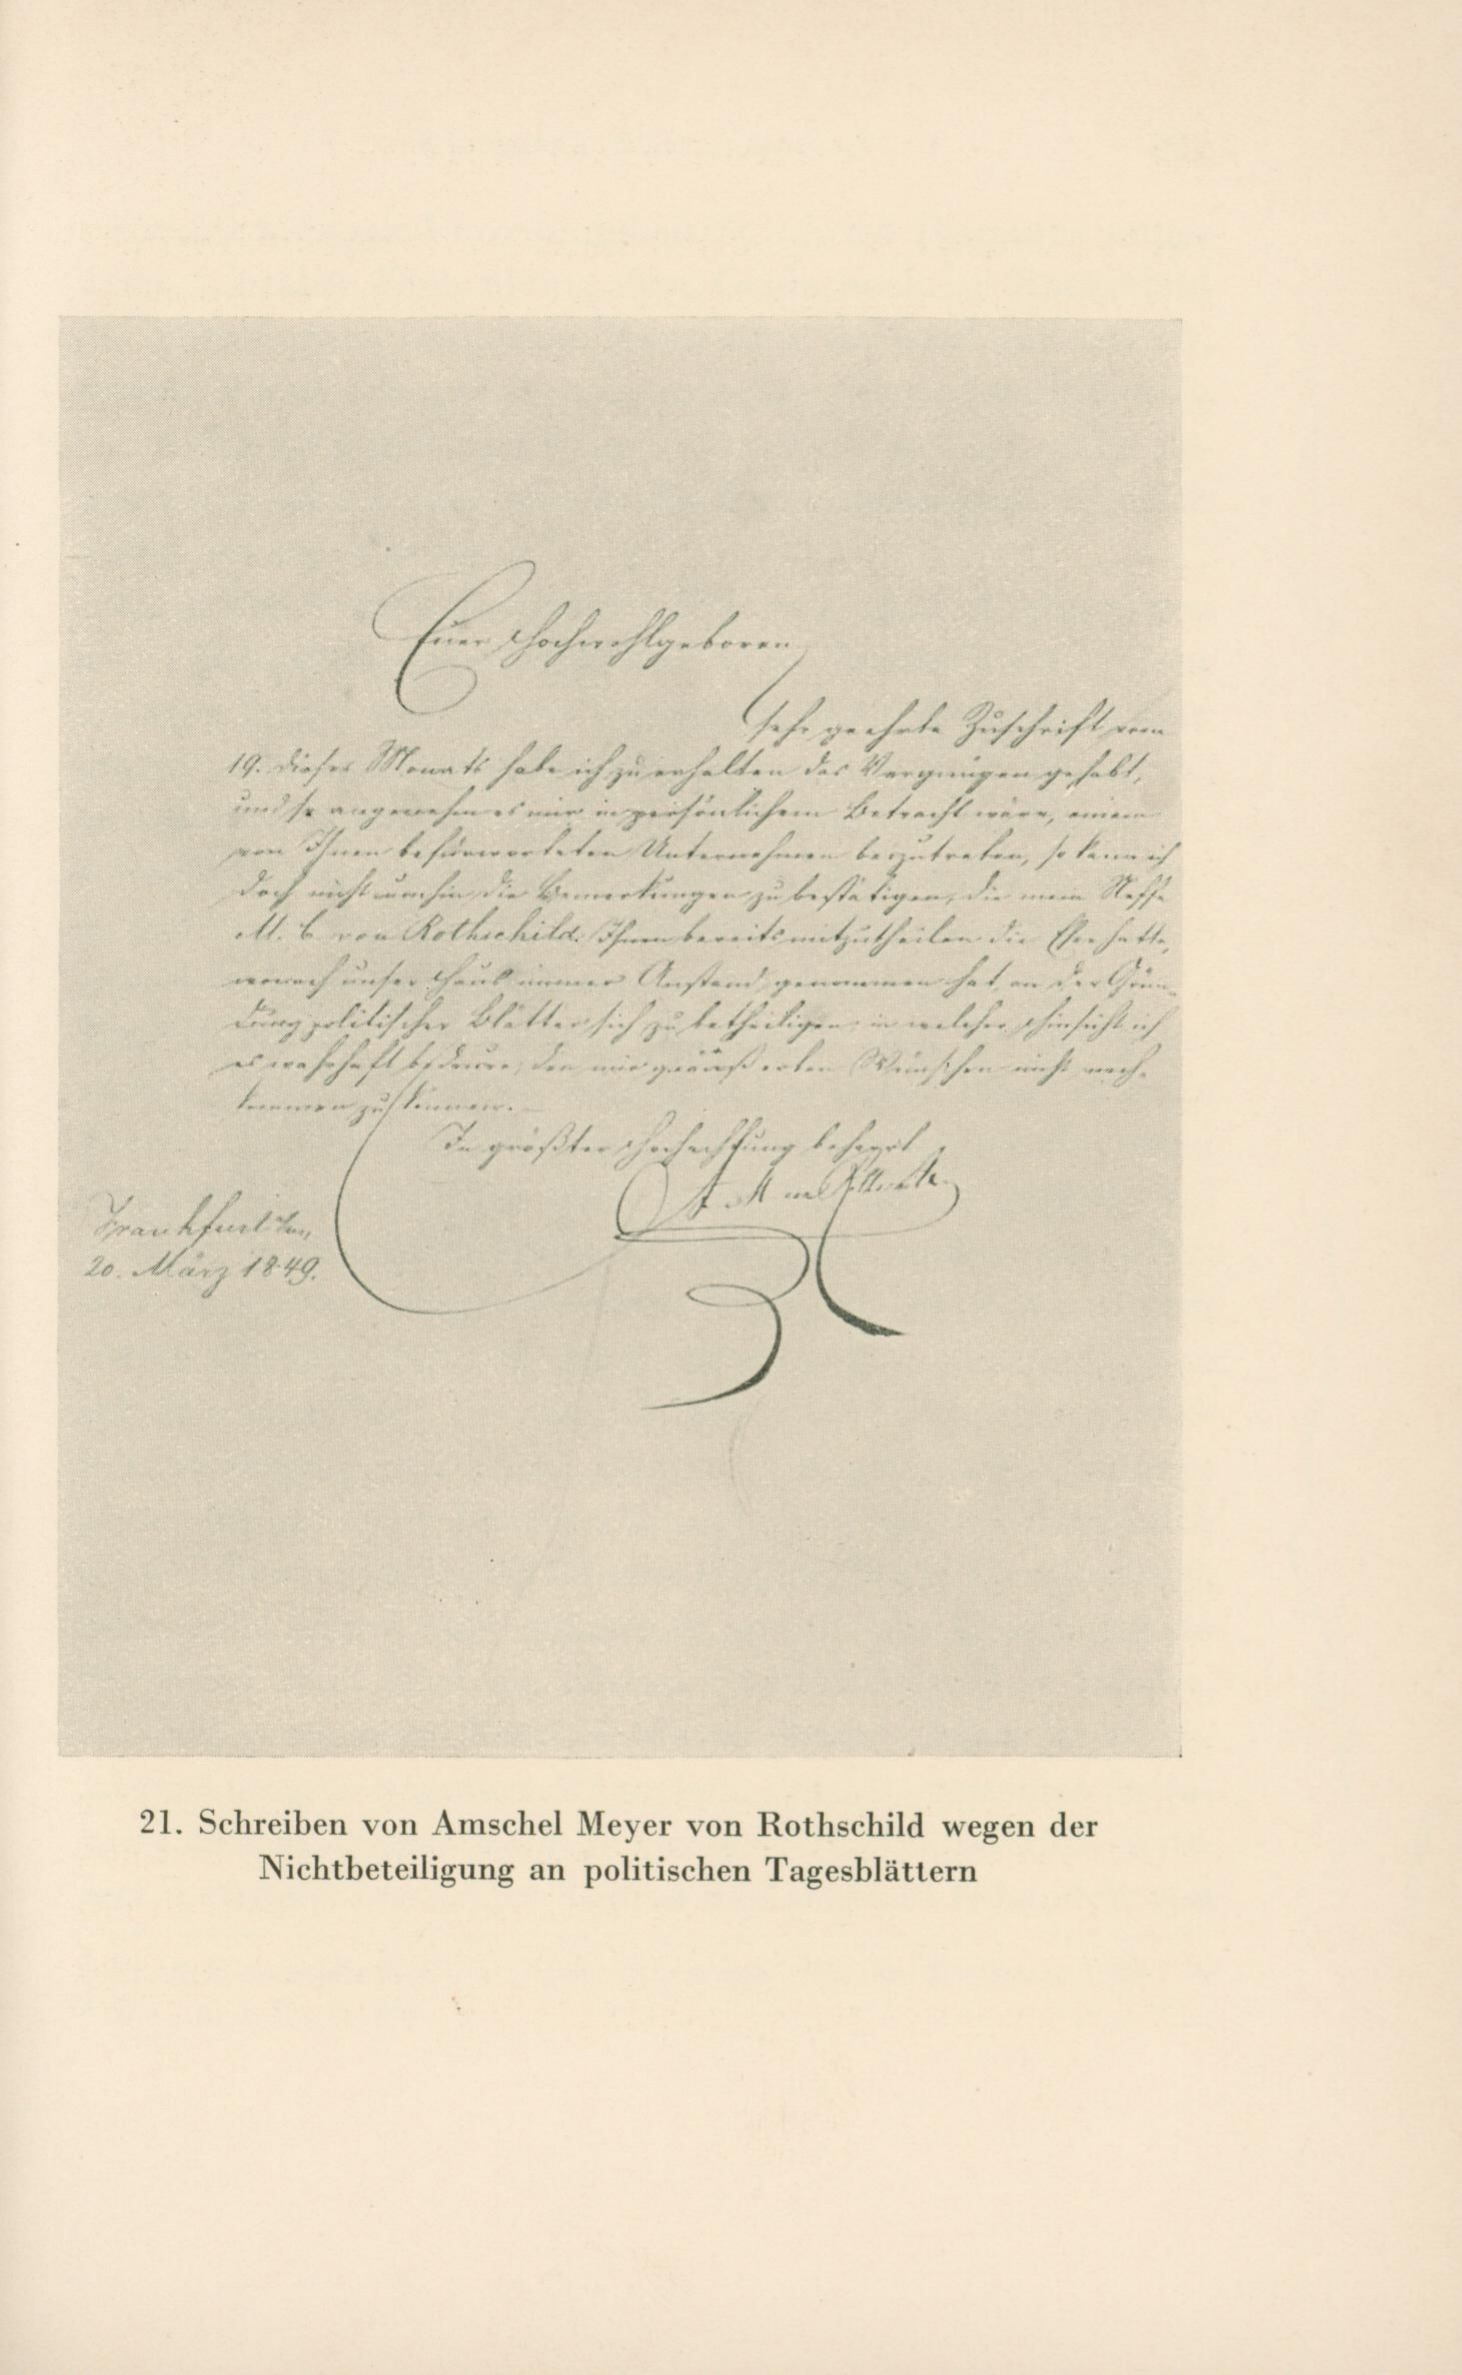 Euer Hochwohlgeboren
sehr geehrte Zuschrift vom
19. dieses Monats habe ich zu erhalten das Vergnügen gehabt,
und so angenehm es mir in persönlichem Betracht wäre, einem
von Ihnen befürworteten Unternehmen beizutreten, so kann ich
doch nicht umhin die Bemerkungen zu bestätigen, die mein Neffe
M. C. von Rothschild Ihnen bereits mitzutheilen die Ehre hatte,
wonach unser Haus immer Anstand genommen hat, an der Grün-
dung politischer Blätter sich zu betheiligen, in welcher Hinsicht ich
es wahrhaft bedaure, den mir geäußerten Wünschen nicht nach-
kommen zu können.
In größter Hochachtung beharrt
A M
Frankfurt den
20. März 1849.
21. Schreiben von Amschel Meyer von Rothschild wegen der
Nichtbeteiligung an politischen Tagesblättern